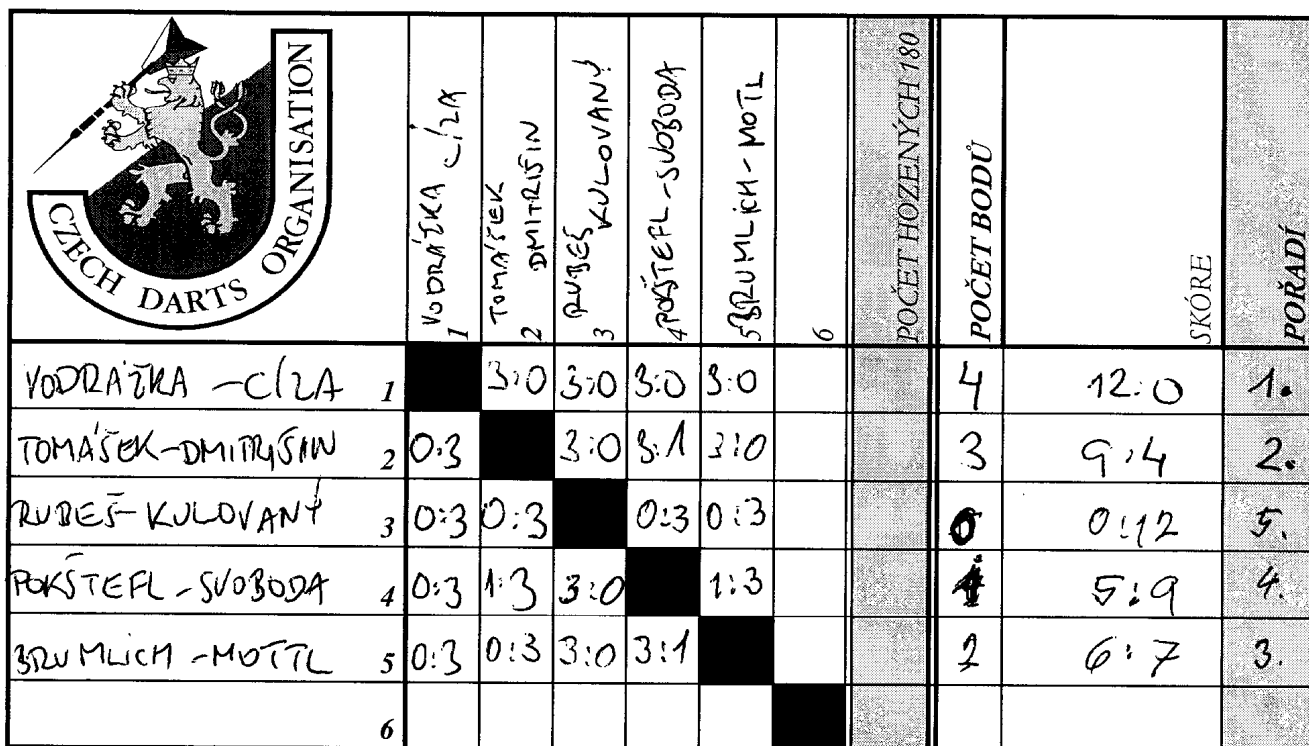 CZECH DARTS ORGANISATION
VODRÁŽKA CÍZA 1
TOMÁŠEK DMITRIŠIN 2
RUBEŠ KULOVANÝ 3
POKŠTEFL-SVOBODA 4
BRUMLICH-MOTL 5
6
POČET HOZENÝCH 180
POČET BODŮ
SKÓRE
POŘADÍ
VODRÁŽKA - CÍZA 1 3:0 3:0 3:0 3:0 4 12:0 1.
TOMÁŠEK-DMITRIŠIN 2 0:3 3:0 3:1 3:0 3 9:4 2.
RUBEŠ-KULOVANÝ 3 0:3 0:3 0:3 0:3 0 0:12 5.
POKŠTEFL-SVOBODA 4 0:3 1:3 3:0 1:3 1 5:9 4.
BRUMLICH-MOTTL 5 0:3 0:3 3:0 3:1 2 6:7 3.
6